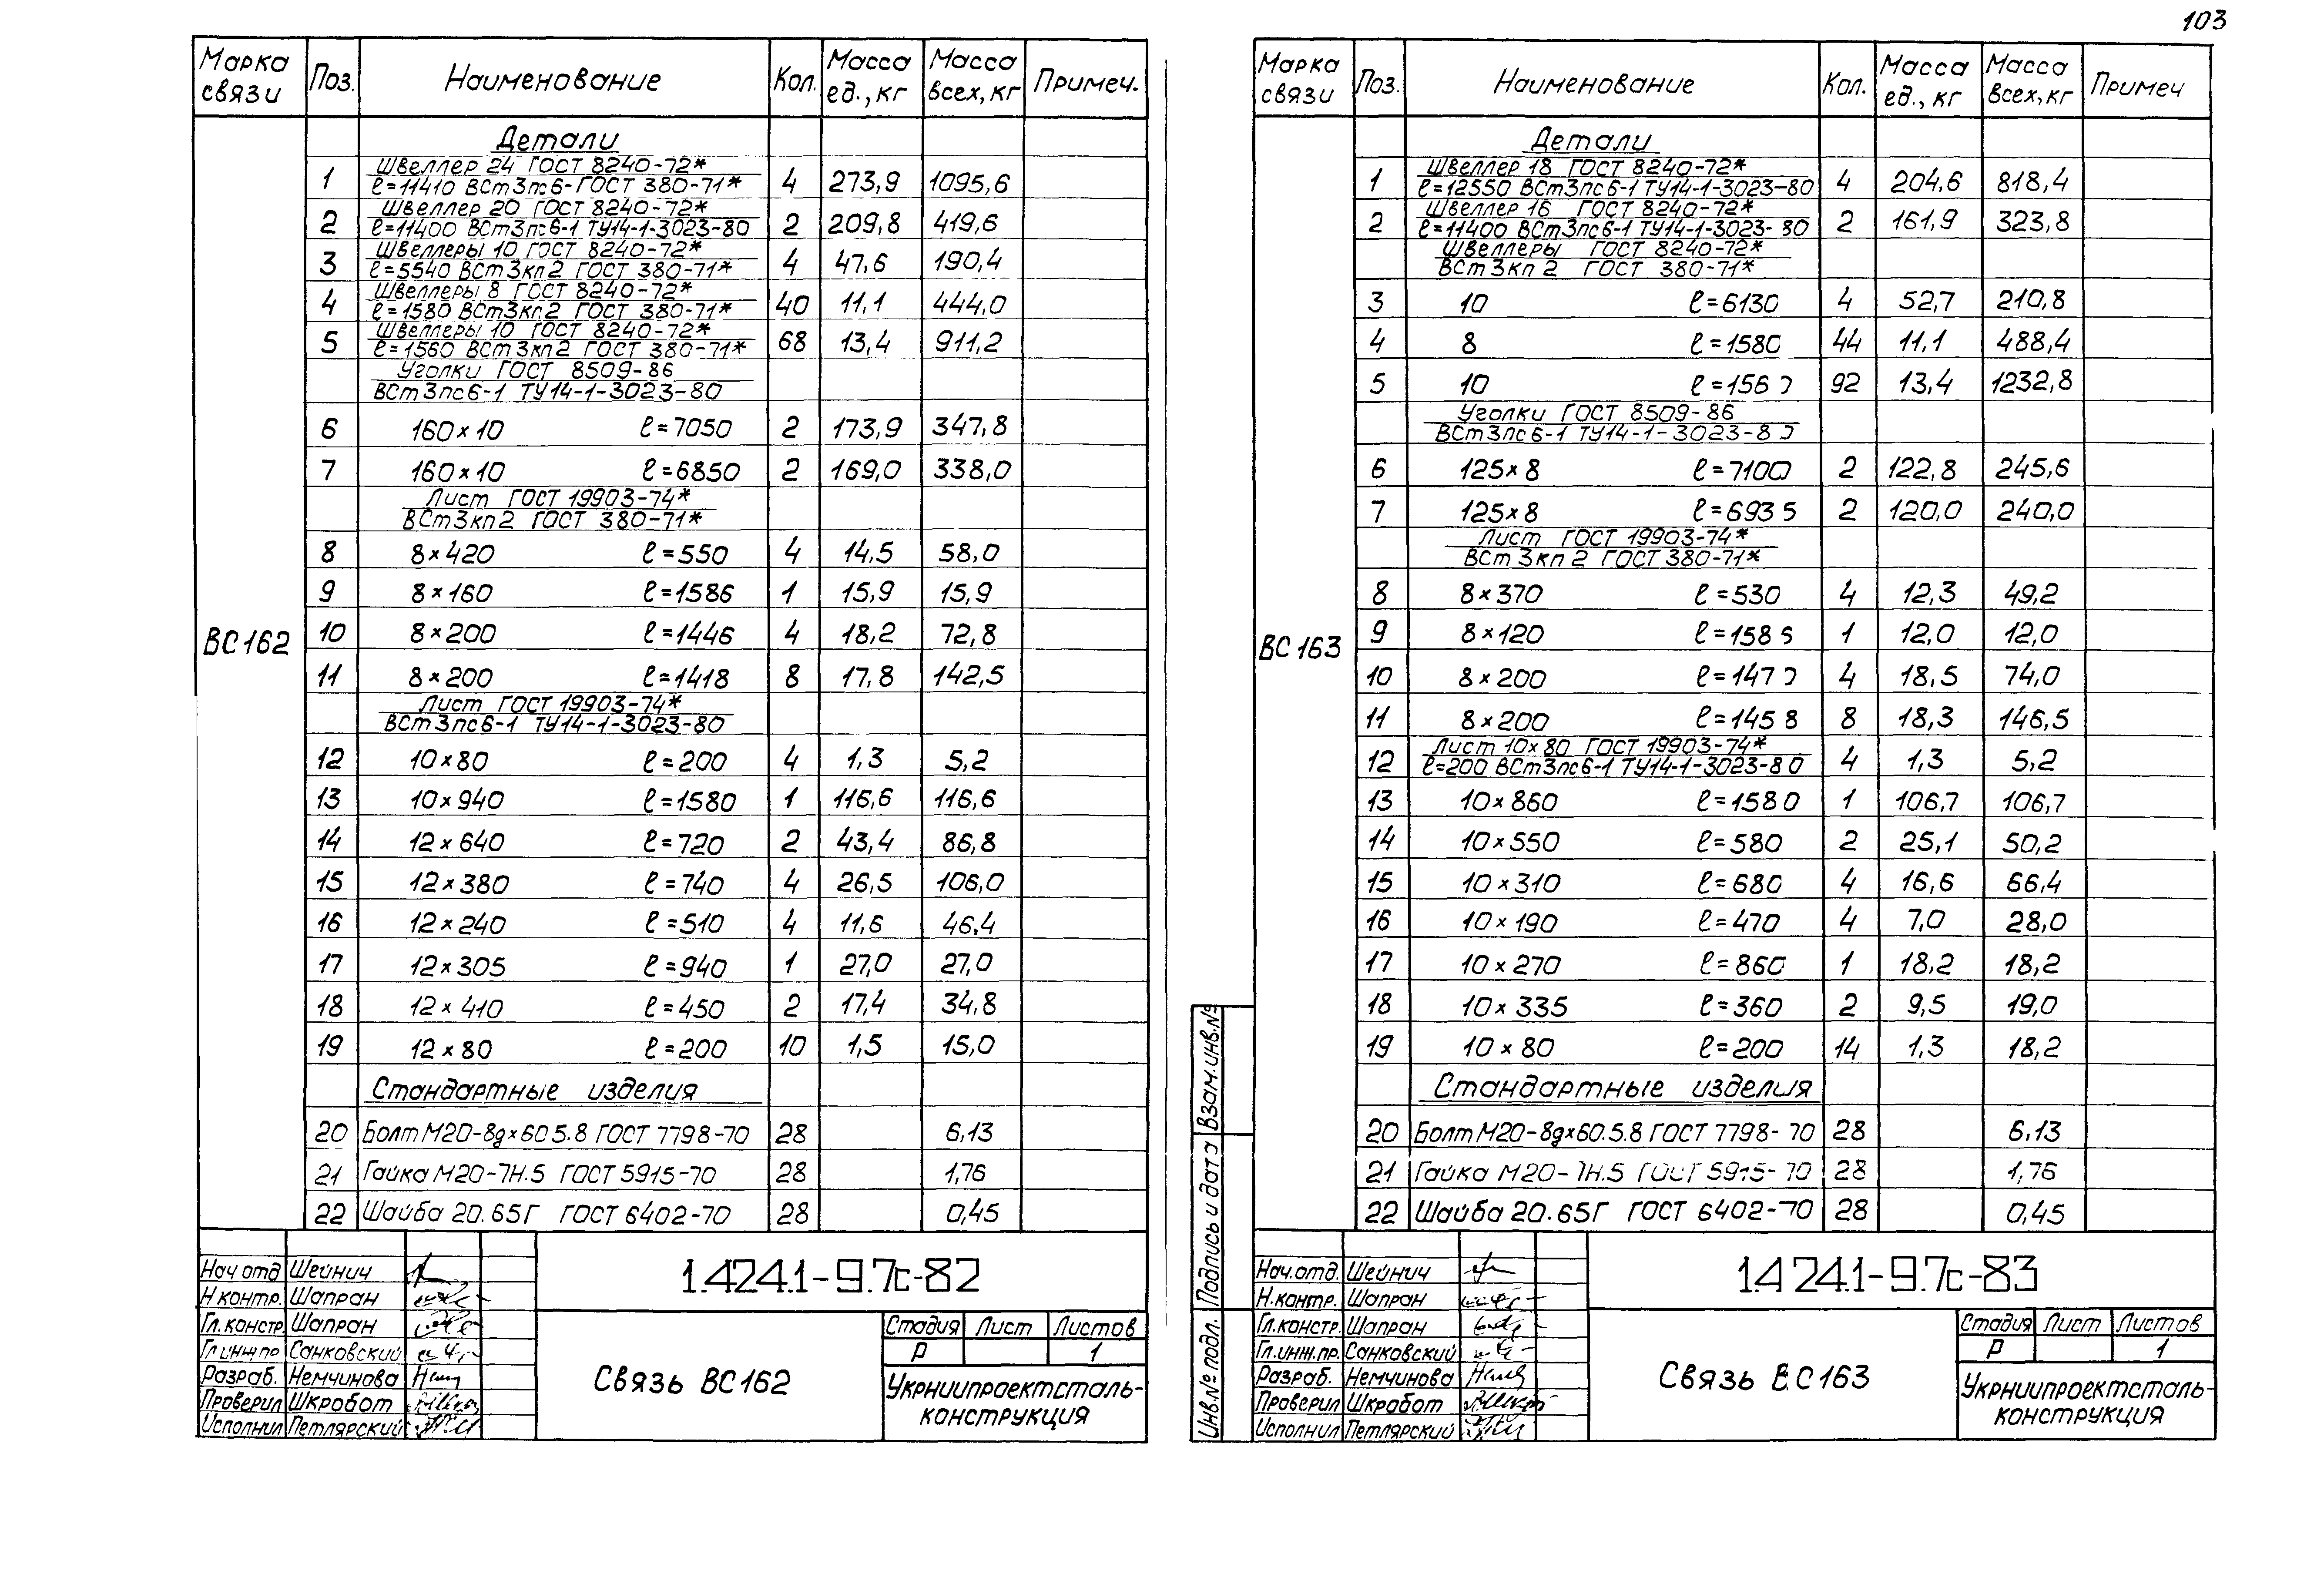 103
Марка связи Поз. Наименование Кол. Масса ед., кг Масса всех, кг Примеч.
ВС162
Детали
1 Швеллер 24 ГОСТ 8240-72* 4 273,9 1095,6
ℓ=11410 ВСт3пс6-ГОСТ 380-71*
2 Швеллер 20 ГОСТ 8240-72* 2 209,8 419,6
ℓ=11400 ВСт3пс6-1 ТУ14-1-3023-80
3 Швеллеры 10 ГОСТ 8240-72* 4 47,6 190,4
ℓ=5540 ВСт3кп2 ГОСТ 380-71*
4 Швеллеры 8 ГОСТ 8240-72* 40 11,1 444,0
ℓ=1580 ВСт3кп2 ГОСТ 380-71*
5 Швеллеры 10 ГОСТ 8240-72* 68 13,4 911,2
ℓ=1560 ВСт3кп2 ГОСТ 380-71*
Уголки ГОСТ 8509-86
ВСт3пс6-1 ТУ14-1-3023-80
6 160×10 ℓ=7050 2 173,9 347,8
7 160×10 ℓ=6850 2 169,0 338,0
Лист ГОСТ 19903-74*
ВСт3кп2 ГОСТ 380-71*
8 8×420 ℓ=550 4 14,5 58,0
9 8×160 ℓ=1586 1 15,9 15,9
10 8×200 ℓ=1446 4 18,2 72,8
11 8×200 ℓ=1418 8 17,8 142,5
Лист ГОСТ 19903-74*
ВСт3пс6-1 ТУ14-1-3023-80
12 10×80 ℓ=200 4 1,3 5,2
13 10×940 ℓ=1580 1 116,6 116,6
14 12×640 ℓ=720 2 43,4 86,8
15 12×380 ℓ=740 4 26,5 106,0
16 12×240 ℓ=510 4 11,6 46,4
17 12×305 ℓ=940 1 27,0 27,0
18 12×410 ℓ=450 2 17,4 34,8
19 12×80 ℓ=200 10 1,5 15,0
Стандартные изделия
20 Болт М20-8g×60.5.8 ГОСТ 7798-70 28 6,13
21 Гайка М20-7Н.5 ГОСТ 5915-70 28 1,76
22 Шайба 20.65Г ГОСТ 6402-70 28 0,45
Нач.отд Шейнич
Н.контр. Шапран
Гл.констр. Шапран
Гл.инж.пр Санковский
Разраб. Немчинова
Проверил Шкробот
Исполнил Петлярский
1.424.1-9.7с-82
Связь ВС162
Стадия Лист Листов
Р 1
Укрниипроектсталь-
конструкция
Марка связи Поз. Наименование Кол. Масса ед., кг Масса всех, кг Примеч
ВС163
Детали
1 Швеллер 18 ГОСТ 8240-72* 4 204,6 818,4
ℓ=12550 ВСт3пс6-1 ТУ14-1-3023-80
2 Швеллер 16 ГОСТ 8240-72* 2 161,9 323,8
ℓ=11400 ВСт3пс6-1 ТУ14-1-3023-80
Швеллеры ГОСТ 8240-72*
ВСт3кп2 ГОСТ 380-71*
3 10 ℓ=6130 4 52,7 210,8
4 8 ℓ=1580 44 11,1 488,4
5 10 ℓ=1560 92 13,4 1232,8
Уголки ГОСТ 8509-86
ВСт3пс6-1 ТУ14-1-3023-80
6 125×8 ℓ=7100 2 122,8 245,6
7 125×8 ℓ=6935 2 120,0 240,0
Лист ГОСТ 19903-74*
ВСт3кп2 ГОСТ 380-71*
8 8×370 ℓ=530 4 12,3 49,2
9 8×120 ℓ=1586 1 12,0 12,0
10 8×200 ℓ=1470 4 18,5 74,0
11 8×200 ℓ=1458 8 18,3 146,5
12 Лист 10×80 ГОСТ 19903-74* 4 1,3 5,2
ℓ=200 ВСт3пс6-1 ТУ14-1-3023-80
13 10×860 ℓ=1580 1 106,7 106,7
14 10×550 ℓ=580 2 25,1 50,2
15 10×310 ℓ=680 4 16,6 66,4
16 10×190 ℓ=470 4 7,0 28,0
17 10×270 ℓ=860 1 18,2 18,2
18 10×335 ℓ=360 2 9,5 19,0
19 10×80 ℓ=200 14 1,3 18,2
Стандартные изделия
20 Болт М20-8g×60.5.8 ГОСТ 7798-70 28 6,13
21 Гайка М20-7Н.5 ГОСТ 5915-70 28 1,76
22 Шайба 20.65Г ГОСТ 6402-70 28 0,45
Инв.№ подл. Подпись и дата Взам.инв.№
Нач.отд. Шейнич
Н.контр. Шапран
Гл.констр. Шапран
Гл.инж.пр. Санковский
Разраб. Немчинова
Проверил Шкробот
Исполнил Петлярский
1.424.1-9.7с-83
Связь ВС163
Стадия Лист Листов
Р 1
Укрниипроектсталь-
конструкция